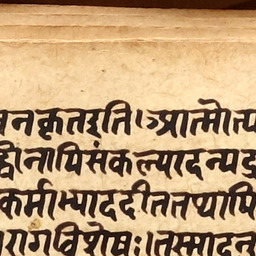 नकृतइति। आत्मोत्प
द्दीनापिसंकल्पादन्यद
कर्माभ्याददीततथापि
रागविशेषः। तस्मादन